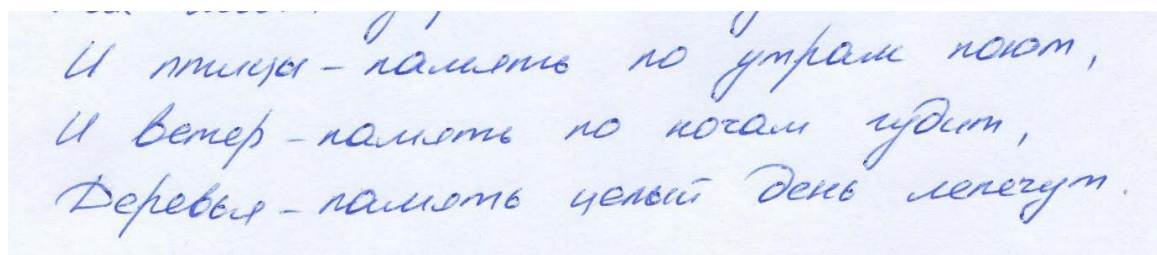 И птицы - память по утрам поют,
И ветер - память по ночам гудит,
Деревья - память целый день лепечут.